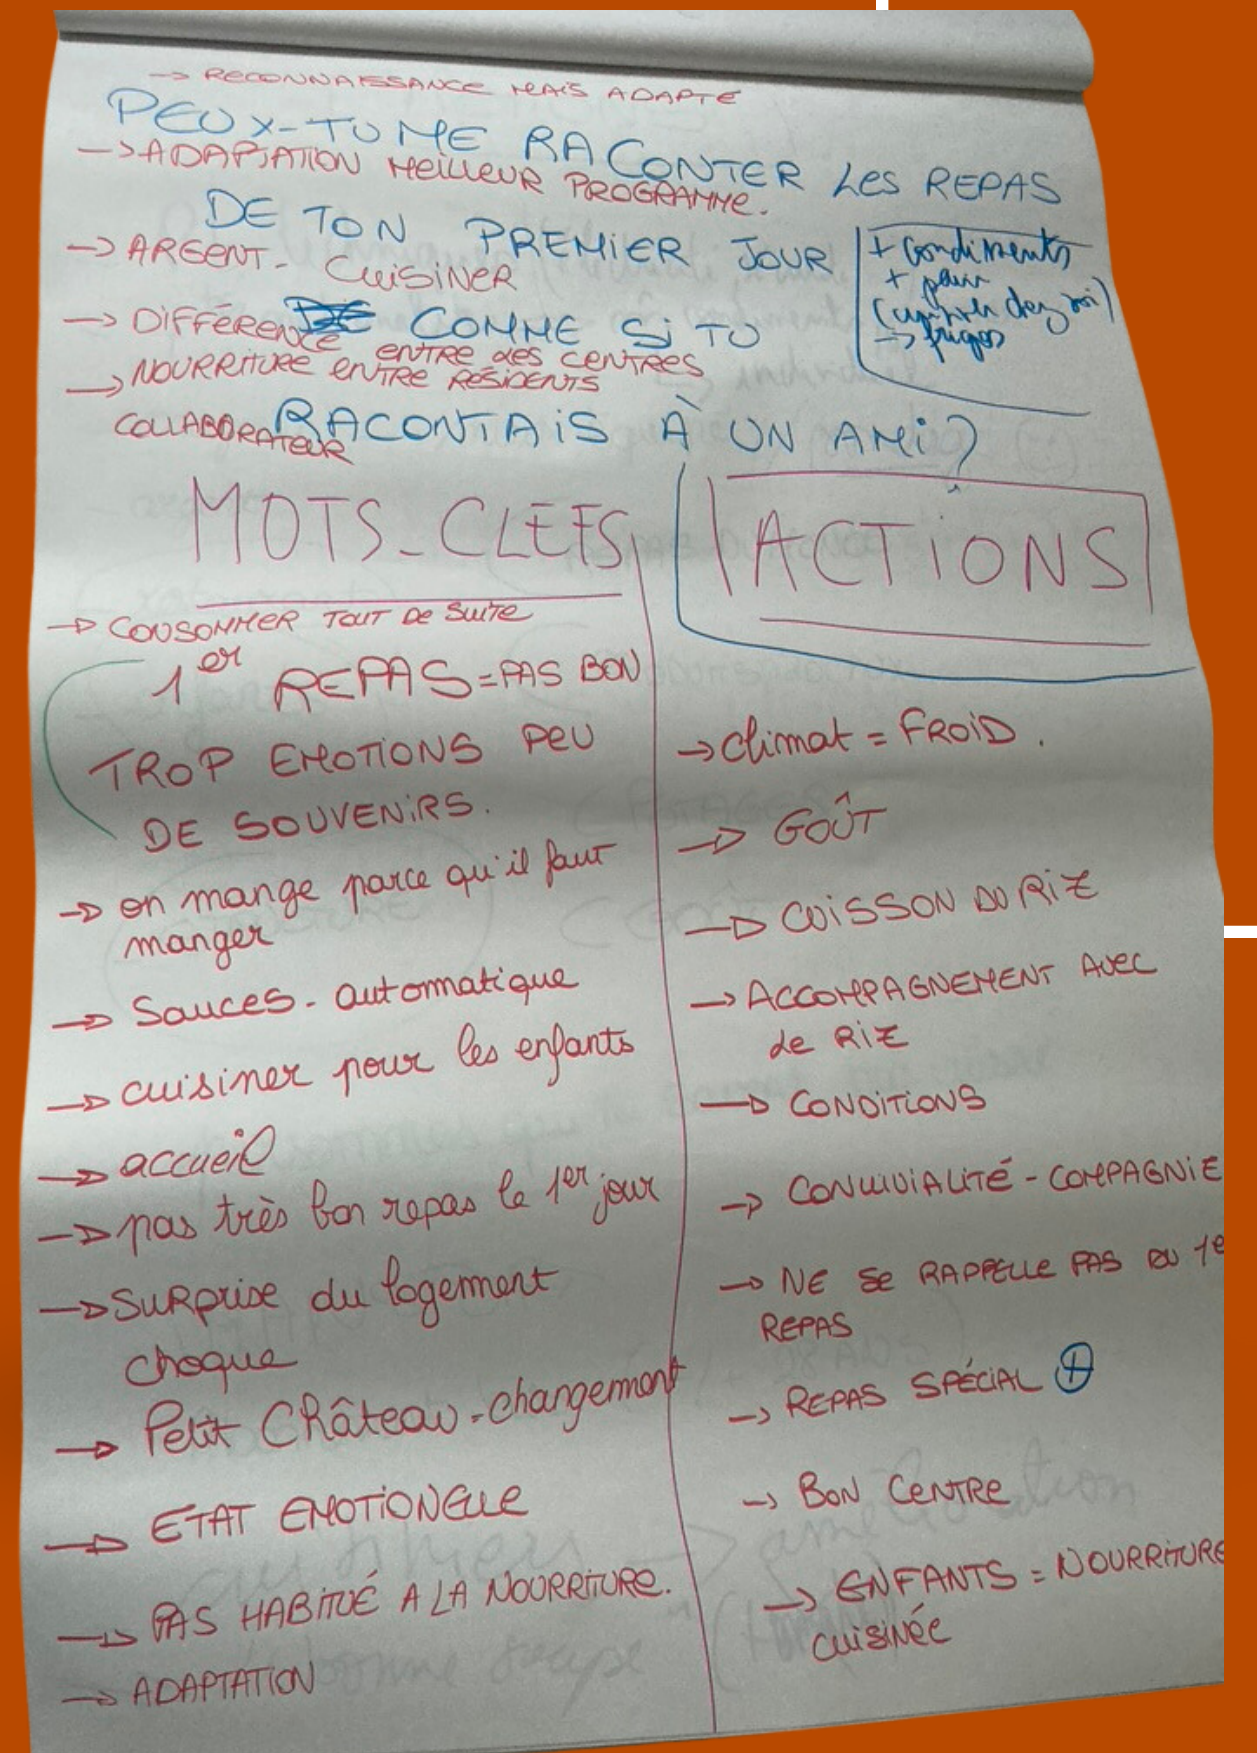 → RECONNAISSANCE MAIS ADAPTE
PEUX-TU ME RACONTER LES REPAS
→ ADAPTATION MEILLEUR PROGRAMME.
DE TON PREMIER JOUR
→ ARGENT - CUISINER
+ condiments
+ pain
→ frigos
→ DIFFÉRENCE ENTRE LES CENTRES
COMME SI TU
→ NOURRITURE ENTRE RÉSIDENTS
COLLABORATEUR
RACONTAIS À UN AMI?
MOTS-CLEFS
ACTIONS
→ CONSOMMER TOUT DE SUITE
1er REPAS = PAS BON
TROP EMOTIONS PEU
DE SOUVENIRS.
→ on mange parce qu'il faut
manger
→ Sauces - automatique
→ cuisiner pour les enfants
→ accueil
→ pas très bon repas le 1er jour
→ SURPRISE du logement
choque
→ Petit Château - changement
→ ETAT EMOTIONELLE
→ PAS HABITUÉ A LA NOURRITURE.
→ ADAPTATION
→ climat = FROID.
→ GOÛT
→ CUISSON DU RIZ
→ ACCOMPAGNEMENT AVEC
de RIZ
→ CONDITIONS
→ CONVIVIALITÉ - COMPAGNIE
→ NE SE RAPPELLE PAS DU 1e
REPAS
→ REPAS SPÉCIAL +
→ BON CENTRE
→ ENFANTS = NOURRITURE
CUISINÉE